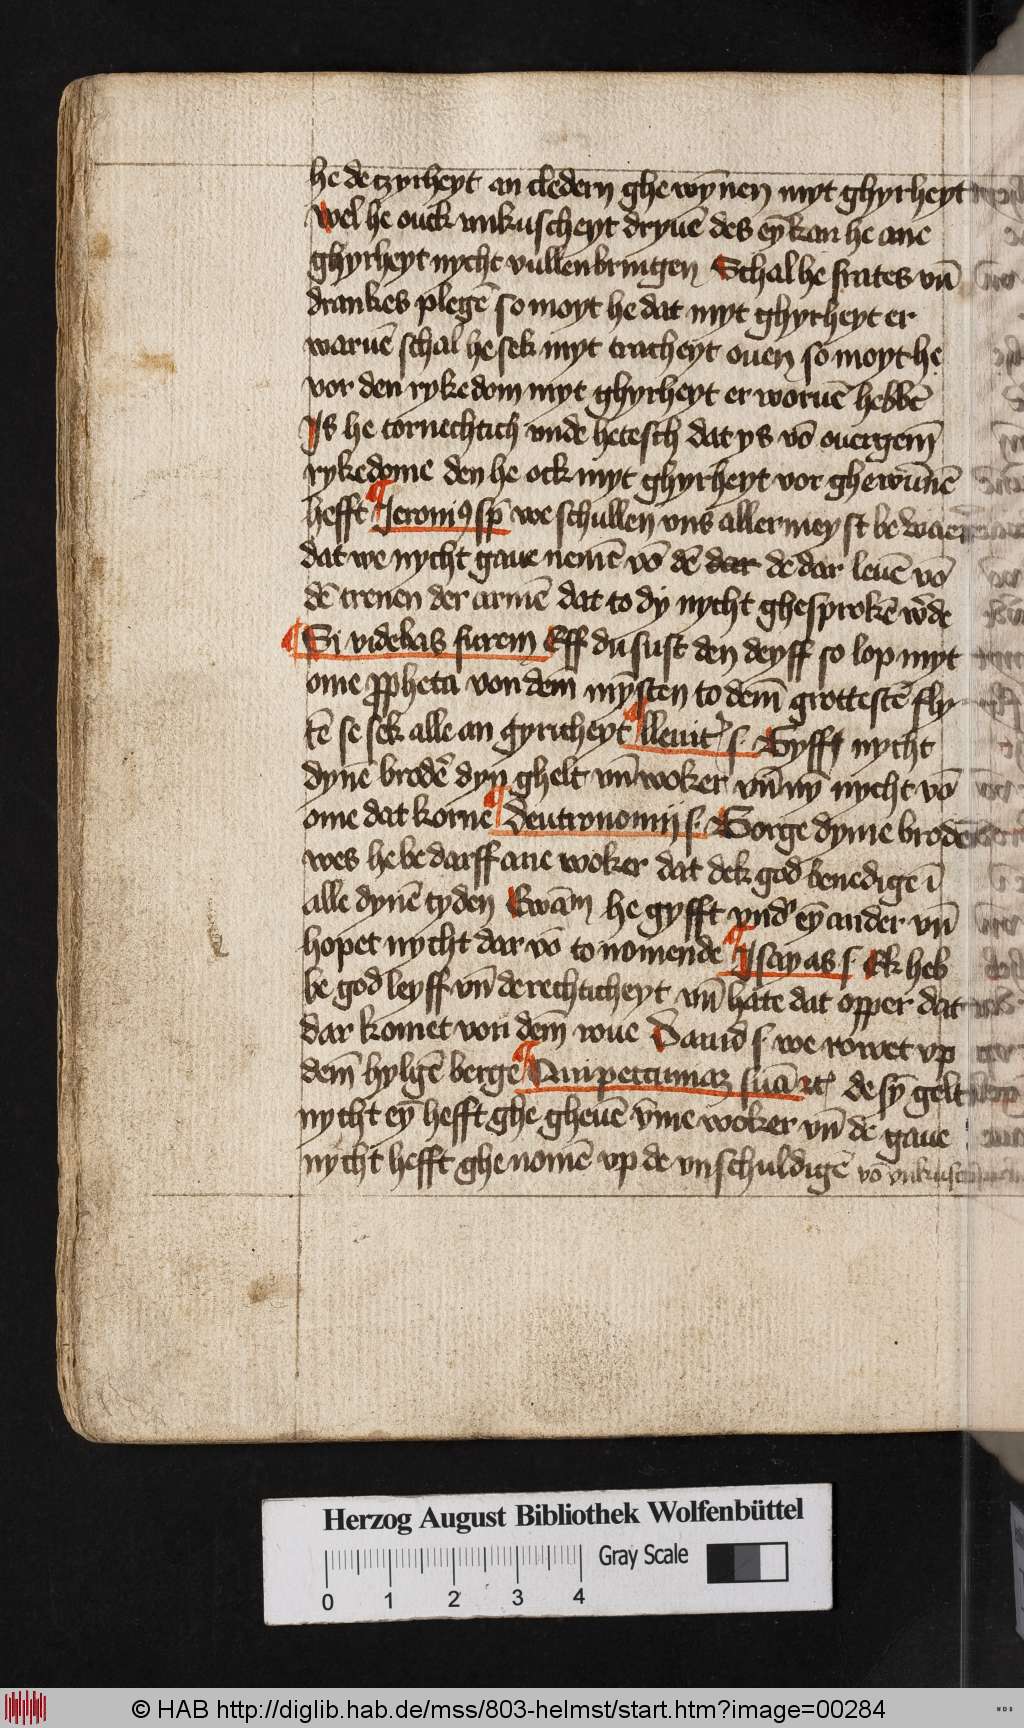 he de tzyrheyt an cledern ghe wȳnen myt ghyrheyt
wel he ouck vnkuscheyt dryuē des eȳ kan he ane
ghyrheyt nycht vullenbringen Schal he frates vn̄
drankes plegē so moyt he dat myt ghyrheyt er
waruē schal he sek myt tracheyt ouen so moyt he
vor den rykedom myt ghyrheyt er woruē hebbē
Js he tornechtich vnde hetesch dat ys vō ouergem̄
rykedome den he ock myt ghyrheyt vor ghewūnē
hefft Jeronimꝰ sp̄ we schullen vns aller meyst be waē
dat we nycht gaue nemē vō dē de dar leuē vō
dē trenen der armē dat to dy nycht ghesprokē w̄de
Si videbas furem Eff du sust den deyff so lop myt
ome ꝓpheta von dem mȳsten to dem̄ grottestē fly
tē se sek alle an gyricheyt lleuit̉ s. Gyfft nycht
dynē brodē dyn ghelt vn̄ woker vn̄ nȳ nycht vō
ome dat kornē Deutronomij s. Borge dyme broder
wes he be darff ane woker dat dek god benedige ī
alle dynē tyden Ewām he gyfft vnd̉ eȳ ander vn̄
hopet nycht dar vō to nomende Jsayas s. Ek heb
be god leyff vn̄ de rechticheyt vn̄ hate dat opper dat
dar komet von dem̄ roue Dauid s. we rowet vp
dem̄ hylgē berge Qui peccuniaꝫ suā ꝛc̉ de sȳ gelt
nycht eȳ hefft ghe gheuē v̄me woker vn̄ de gaue
nycht hefft ghe nomē vp de vnschuldigē vō vnkusch
Herzog August Bibliothek Wolfenbüttel
Gray Scale
0 1 2 3 4
© HAB http://diglib.hab.de/mss/803-helmst/start.htm?image=00284